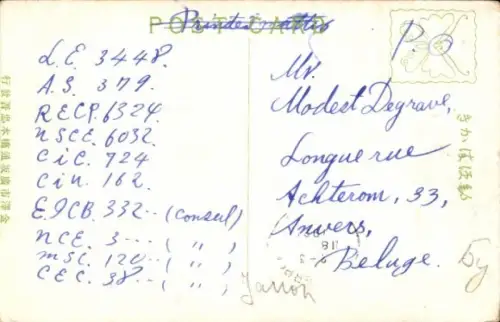 POST CARD
Printed matter
L.E. 3448.
A.S. 379.
RECP. 6324.
NSCE. 6032.
CiC. 724
Cin. 162.
EJCB. 332.. (consul)
NCE. 3... ( " " )
MSC. 120.. ( " " )
CEC. 38.. ( " " )
P.O
Mr.
Modest Degrave,
Longue rue
Achterom, 33,
Anvers,
Beluge.
きかは便郵